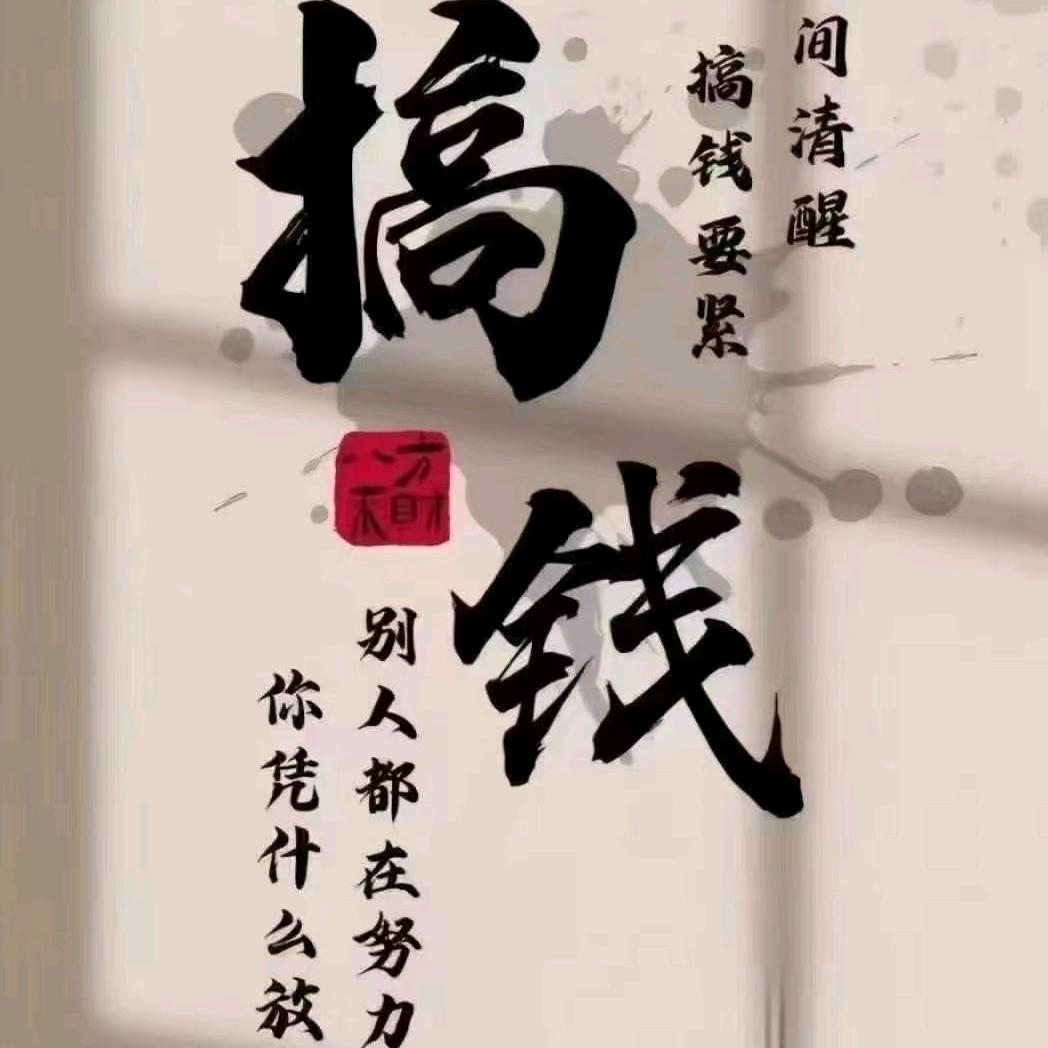 间清醒
搞钱要紧
搞钱
八方
来财
别人都在努力
你凭什么放